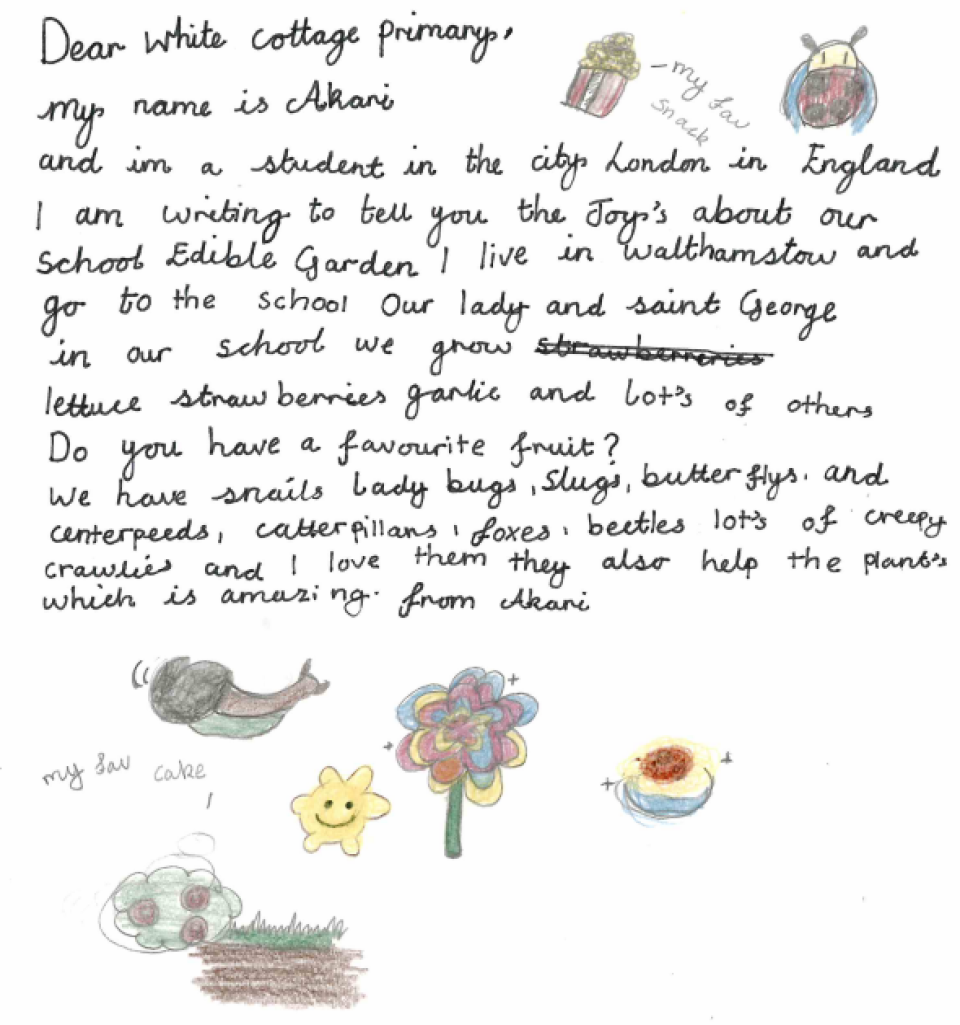 Dear White cottage primary,
my name is Akari
— my fav
snack
and im a student in the city London in England
I am writing to tell you the Joy's about our
school Edible Garden I live in walthamstow and
go to the school Our lady and saint George
in our school we grow strawberreries
lettuce strawberries garlic and lot's of others
Do you have a favourite fruit?
we have snails Lady bugs, slugs, butterflys. and
centerpeeds, catterpillars, foxes, beetles lot's of creepy
crawlies and I love them they also help the plant's
which is amazing. from Akari
my fav cake